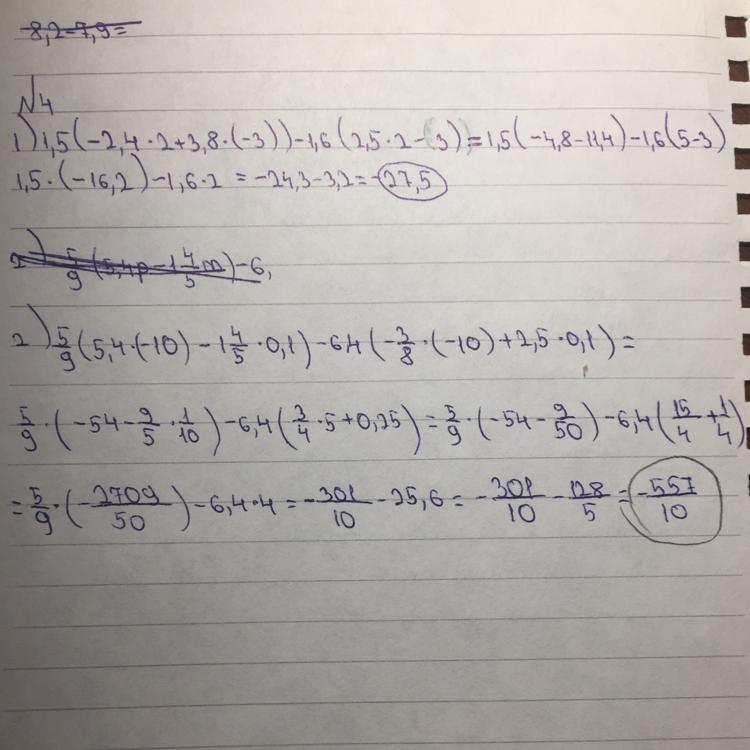 8,2-7,9=
№4
1) 1,5(-2,4·2+3,8·(-3))-1,6(2,5·2-3)=1,5(-4,8-11,4)-1,6(5-3)
1,5·(-16,2)-1,6·2=-24,3-3,2=-27,5
2) 5/9(5,4p-1 4/5m)-6,
2) 5/9(5,4·(-10)-1 4/5·0,1)-6,4(-3/8·(-10)+2,5·0,1)=
5/9·(-54-9/5·1/10)-6,4(3/4·5+0,25)=5/9·(-54-9/50)-6,4(15/4+1/4)
=5/9·(-2709/50)-6,4·4=-301/10-25,6=-301/10-128/5=-557/10